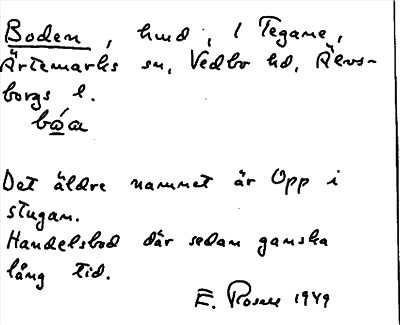 Boden, hmd, i Tegane,
Ärtemarks sn, Vedbo hd, Älvs-
borgs l.
bó̲a
Det äldre namnet är Opp i
stugan.
Handelsbod där sedan ganska
lång tid.
E. Rosell 1949